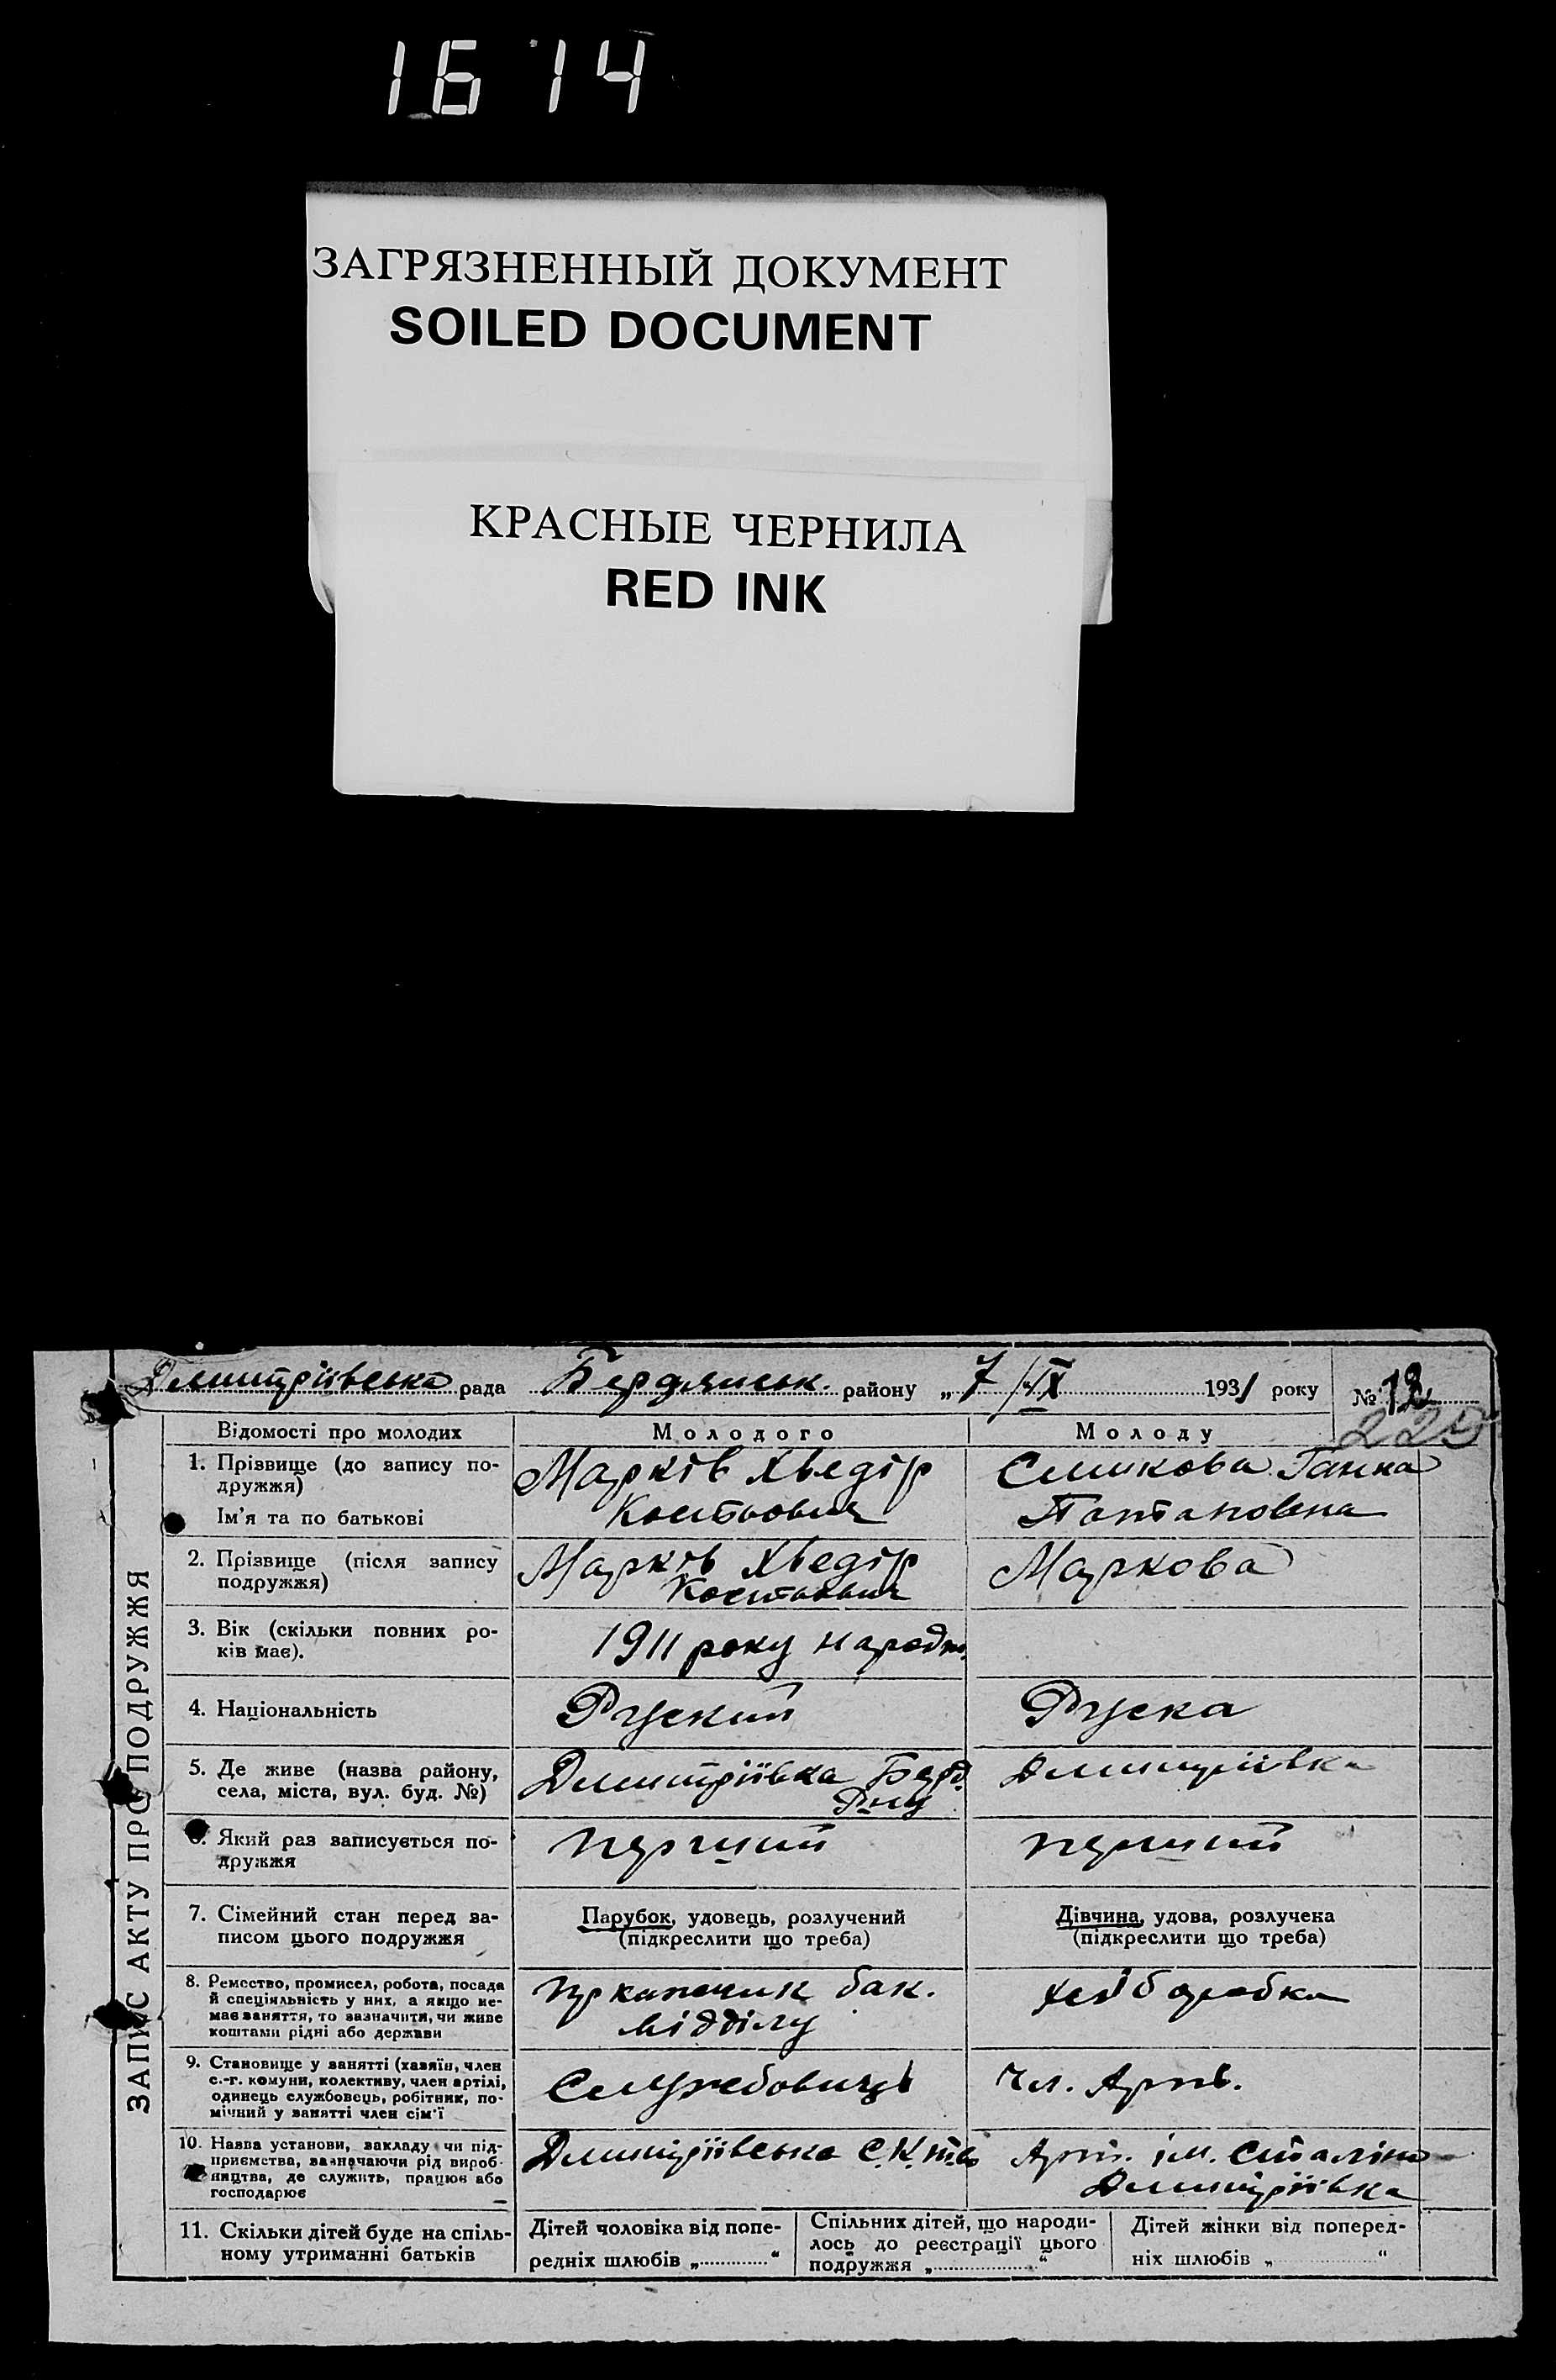 1614
ЗАГРЯЗНЕННЫЙ ДОКУМЕНТ
SOILED DOCUMENT
КРАСНЫЕ ЧЕРНИЛА
RED INK
Дмитріївська рада Бердянськ. району „7/ІХ 1931 року № 12
225
ЗАПИС АКТУ ПРО ПОДРУЖЖЯ
Відомості про молодих
Молодого
Молоду
1. Прізвище (до запису по-
дружжя)
Ім'я та по батькові
Марків Хведір
Костьович
Симкова Ганна
Потаповна
2. Прізвище (після запису
подружжя)
Марків Хведір
Костьович
Маркова
3. Вік (скільки повних ро-
ків має).
1911 року народж.
4. Національність
Руский
Руска
5. Де живе (назва району,
села, міста, вул. буд. №)
Дмитріївка Берд.
Р-ну
Дмитріївка
6. Який раз записується по-
дружжя
перший
перший
7. Сімейний стан перед за-
писом цього подружжя
Парубок, удовець, розлучений
(підкреслити що треба)
Дівчина, удова, розлучена
(підкреслити що треба)
8. Ремество, промисел, робота, посада
й спеціяльність у них, а якщо не-
має заняття, то зазначити, чи живе
коштами рідні або держави
прикащик бак.
відділу
хліборобка
9. Становище у занятті (хазяїн, член
с.-г. комуни, колективу, член артілі,
одинець службовець, робітник, по-
мічний у занятті член сім'ї
Служебовиць
Чл. Артіл.
10. Назва установи, закладу чи під-
приємства, зазначаючи рід вироб-
ництва, де служить, працює або
господарює
Дмитріївська С.К. т-во
Арт. ім. Сталіна
Дмитріївка
11. Скільки дітей буде на спіль-
ному утриманні батьків
Дітей чоловіка від попе-
редніх шлюбів „.............“
Спільних дітей, що народи-
лось до реєстрації цього
подружжя „....................“
Дітей жінки від поперед-
ніх шлюбів „....................“